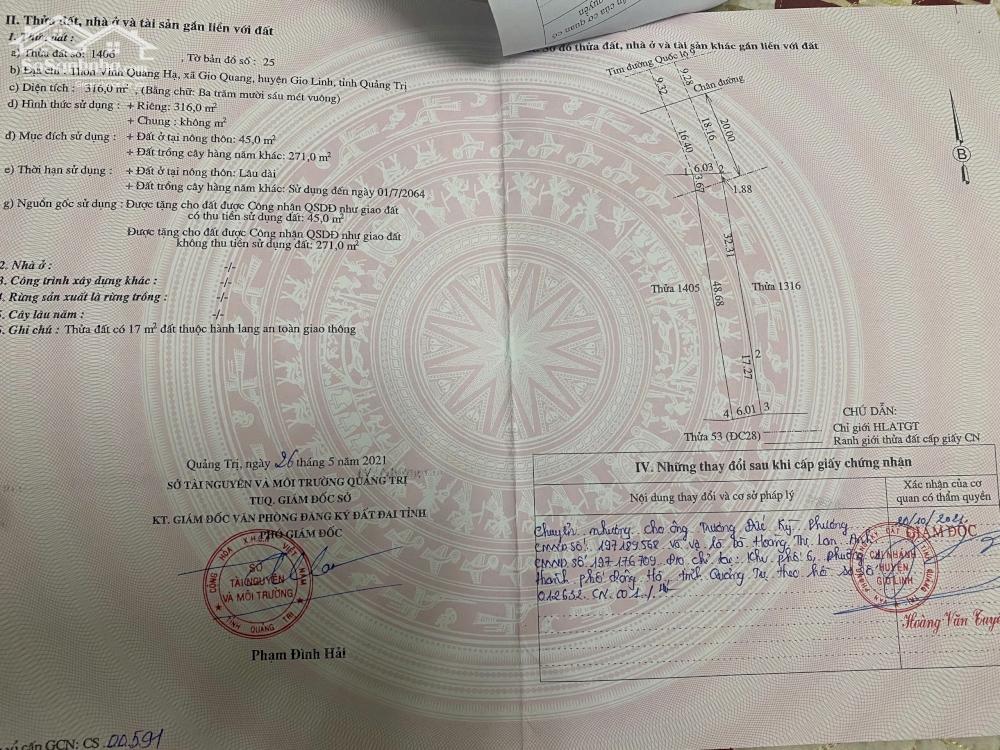 II. Thửa đất, nhà ở và tài sản gắn liền với đất
1. Thửa đất:
a) Thửa đất số: 1406 , Tờ bản đồ số: 25
b) Địa chỉ: Thôn Vinh Quang Hạ, xã Gio Quang, huyện Gio Linh, tỉnh Quảng Trị
c) Diện tích: 316,0 m², (Bằng chữ: Ba trăm mười sáu mét vuông)
d) Hình thức sử dụng: + Riêng: 316,0 m²
+ Chung: không m²
đ) Mục đích sử dụng: + Đất ở tại nông thôn: 45,0 m²
+ Đất trồng cây hàng năm khác: 271,0 m²
e) Thời hạn sử dụng: + Đất ở tại nông thôn: Lâu dài
+ Đất trồng cây hàng năm khác: Sử dụng đến ngày 01/7/2064
g) Nguồn gốc sử dụng: Được tặng cho đất được Công nhận QSDĐ như giao đất
có thu tiền sử dụng đất: 45,0 m²
Được tặng cho đất được Công nhận QSDĐ như giao đất
không thu tiền sử dụng đất: 271,0 m²
2. Nhà ở: -/-
3. Công trình xây dựng khác: -/-
4. Rừng sản xuất là rừng trồng: -/-
5. Cây lâu năm: -/-
6. Ghi chú: Thửa đất có 17 m² đất thuộc hành lang an toàn giao thông
Quảng Trị, ngày 26 tháng 5 năm 2021
SỞ TÀI NGUYÊN VÀ MÔI TRƯỜNG QUẢNG TRỊ
TUQ. GIÁM ĐỐC SỞ
KT. GIÁM ĐỐC VĂN PHÒNG ĐĂNG KÝ ĐẤT ĐAI TỈNH
PHÓ GIÁM ĐỐC
SỞ
TÀI NGUYÊN
VÀ MÔI TRƯỜNG
TỈNH QUẢNG TRỊ
Phạm Đình Hải
sổ cấp GCN: CS 00591
đồ thửa đất, nhà ở và tài sản khác gắn liền với đất
Tim đường Quốc lộ 9
Chân đường
9.32
9.28
18.16
20.00
16.40
1
6,03
2
3.67
1,88
B
32.31
Thửa 1405
48.68
Thửa 1316
2
17.27
4
6,01
3
Thửa 53 (ĐC28)
CHÚ DẪN:
Chỉ giới HLATGT
Ranh giới thửa đất cấp giấy CN
IV. Những thay đổi sau khi cấp giấy chứng nhận
Nội dung thay đổi và cơ sở pháp lý
Xác nhận của cơ
quan có thẩm quyền
Chuyển nhượng cho ông Trương Đức Kỳ Phương
CMND số: 197189568 và vợ là bà Hoàng Thị Lan Anh
CMND số: 197176709 địa chỉ tại: Khu phố 6, Phường
thành phố Đông Hà, tỉnh Quảng Trị theo hồ sơ số
012652.CN.001./.
20/10/2021
GIÁM ĐỐC
CHI NHÁNH
HUYỆN
GIO LINH
Hoàng Văn Tuy
SoSanhNha